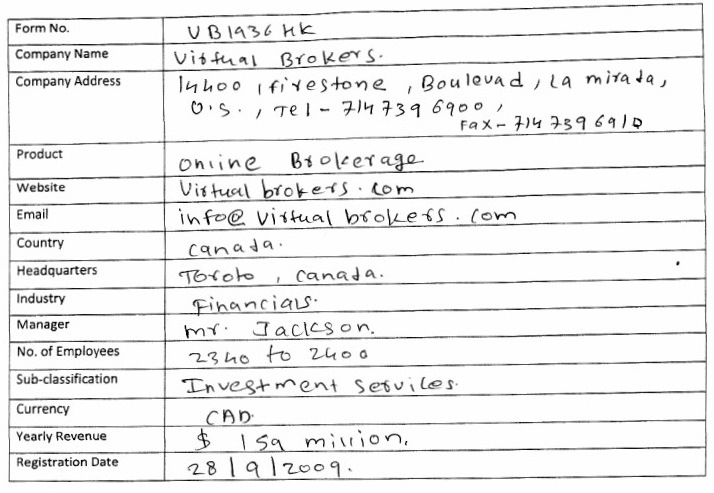 Form No. VB1936HK
Company Name Virtual Brokers.
Company Address 14400 , firestone , Boulevad , La mirada,
U.S. , Tel - 714 739 6900 ,
Fax - 714 739 6910
Product online Brokerage
Website Virtualbrokers.com
Email info@virtualbrokers.com
Country Canada.
Headquarters Toroto , Canada.
Industry Financials.
Manager mr. Jackson.
No. of Employees 2340 to 2400
Sub-classification Investment Services.
Currency CAD.
Yearly Revenue $ 159 million.
Registration Date 28/9/2009.